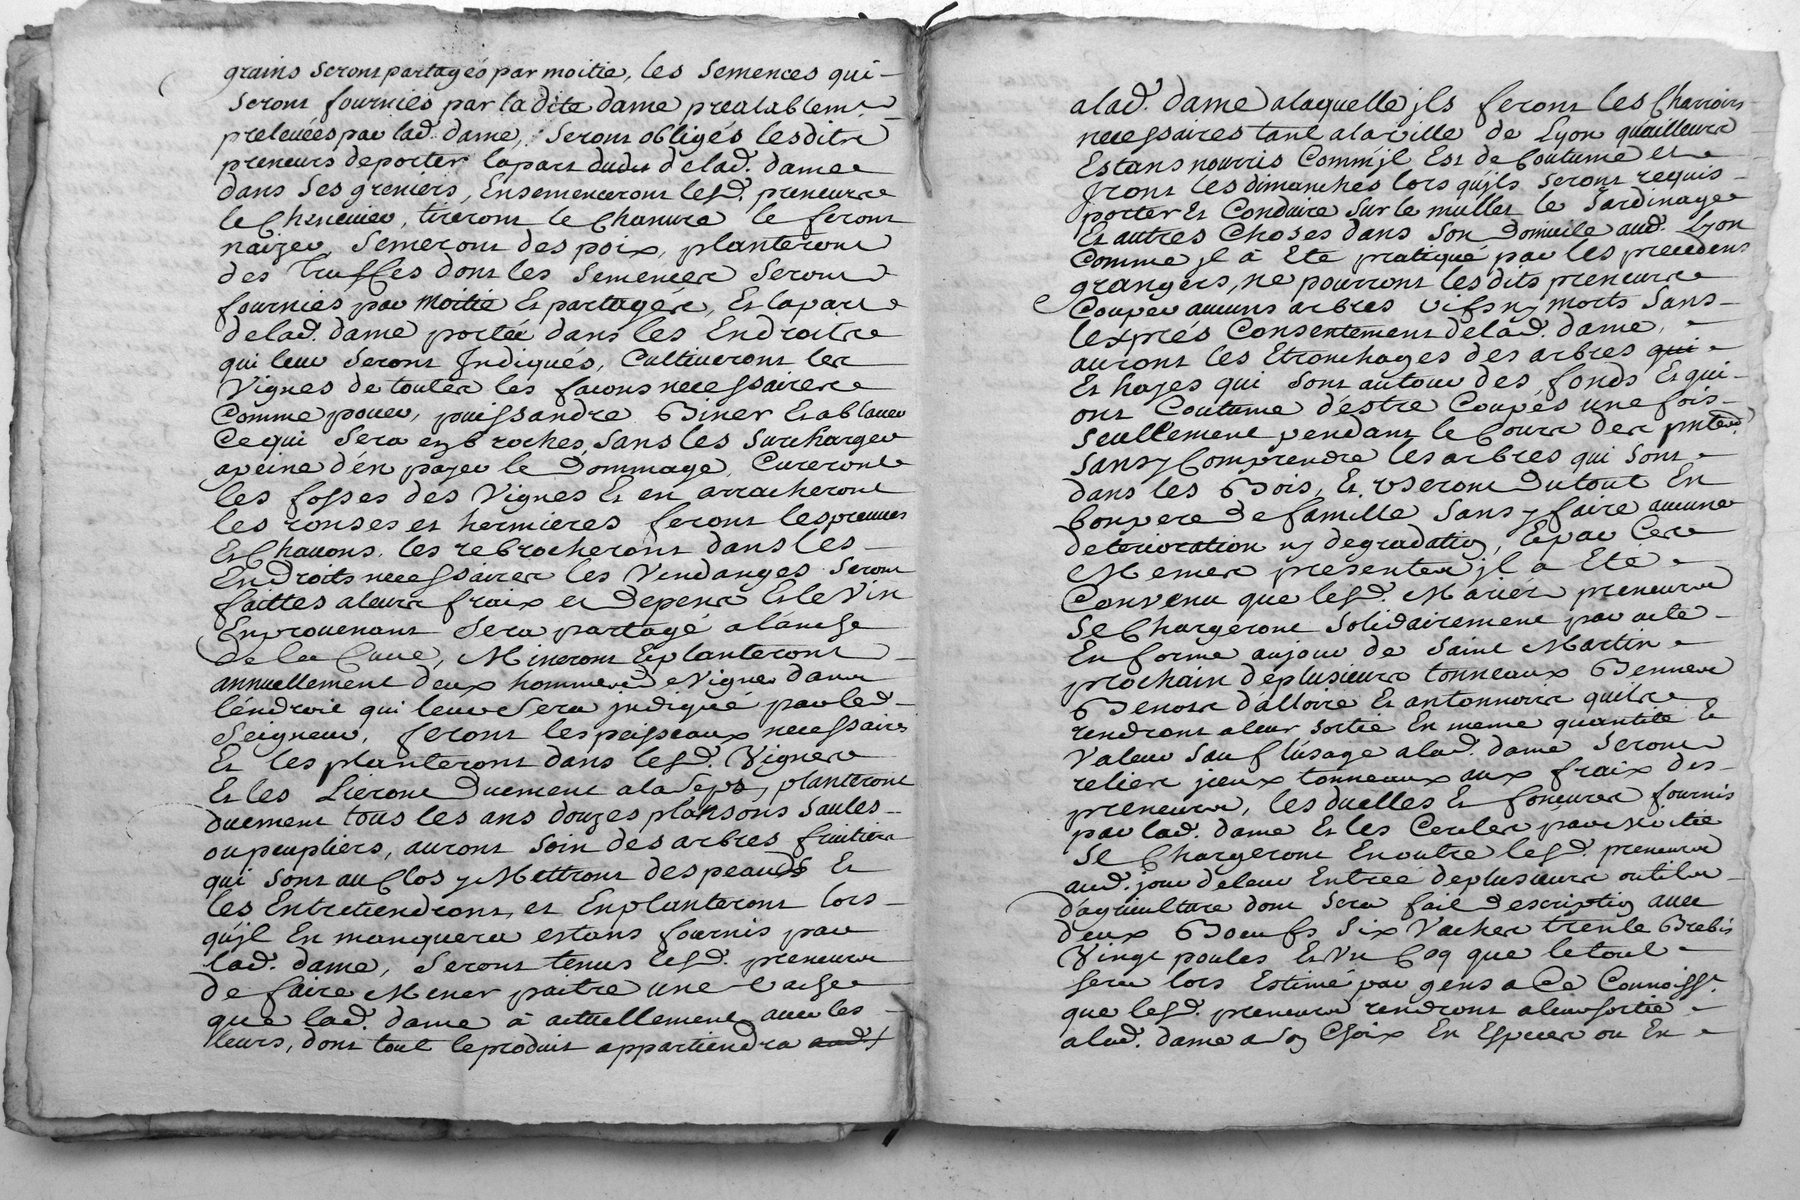 grains seront partagés par moitie, les semences qui
seront fournies par la dite dame prealablemt
prelevées par lad. dame, seront obliges lesdits
preneurs de porter la part dudit de lad. dame
dans ses greniers, Ensemenceront lesd. preneurs
le Chenevier, tireront le Chanvre le feront
naizer, semeront des poix, planteront
des truffes dont les semences seront
fournies par moitie Et partagés, Et la part
de lad. dame portée dans les Endroits
qui leur seront Indiqués, Cultiveront les
Vignes de toutes les facons necessaires
Comme pouer, puissandre Biner Et ablauer
Ce qui sera en broches, sans les surcharger
a peine d'en payer le dommage, Cureront
les fosses des Vignes Et en arracheront
les ronses et hermieres feront les preuues
Et Chauons, les rebrocheront dans les
Endroits necessaires les Vendanges seront
faittes a leurs fraix et depens Et le Vin
Enprouenant sera partagé a l'anche
de la Cuve, Mineront Et planteront
annuellement deux hommes de Vignes dans
l'endroit qui leur sera jndiqué par led.
Seigneur, feront les peisseaux necessaires
Et les planteront dans lesd. Vignes
Et les Lieront Duement a la seps, planteront
duement tous les ans douzes plansons saules
ou peupliers, auront soin des arbres fruitiers
qui sont au Clos y Mettront des peaux Et
les Entretiendront, et Enplanteront lors
qu'jl En manquera estans fournis par
lad. dame, seront tenus lesd. preneurs
de faire Mener paitre une Vache
que lad. dame à actuellement avec les
leurs, dont tout le produit appartiendra aud.
a lad. dame a laquelle jls feront les Charrois
necessaires tant a la ville de Lyon qu'ailleurs
Estans nourris Comm'jl Est de Coutume et
Jront les dimanches lors qu'jls seront requis
porter Et Conduire sur le mullet le Jardinage
Et autres Choses dans son Domicile aud. Lyon
Comme jl a Eté pratiqué par les precedens
grangers, ne pourront lesdits preneurs
Couper aucuns arbres vifs ny morts sans
l'exprés Consentement de lad. dame,
auront les Etronchages des arbres qui
Et hayes qui sont autour des fonds Et qui
ont Coutume d'estre Coupés une fois
seullement pendant le Cours des pntes
sans y Comprendre les arbres qui sont
dans les Bois, Et useront Du tout En
bon pere de famille sans y faire aucune
deterioration ny degradation, Et par Ces
Memes presentes jl a Eté
Convenu que lesd. Mariés preneurs
se Chargeront solidairement par acte
En forme au jour de Saint Martin
prochain de plusieurs tonneaux Bennes
Benots d'alloire Et antonnoirs qu'ils
rendront a leur sortie En meme quantité Et
Valeur sauf l'usage a lad. dame seront
relies jceux tonneaux aux fraix des
preneurs, les duelles Et fonceures fournis
par lad. dame Et les Cercles par Moitié
se Chargeront En outre lesd. preneurs
aud. jour de leur Entrée de plusieurs outils
d'agriculture dont sera fait description avec
deux Boeufs six Vaches trente Brebis
Vingt poules Et Un Coq que le tout
sera lors Estimé par gens a Ce Connoisst
que lesd. preneurs rendront a leur sortie
a lad. dame a son Choix En Especes ou En